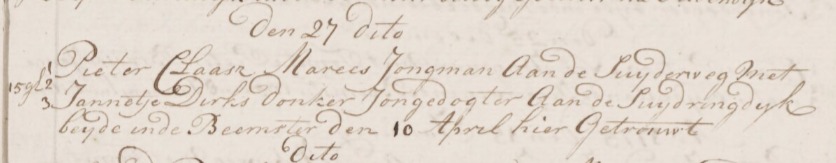 Den 27 dito
1 Pieter Claasz Marees Jongman Aan de Suyderweg Met
159 2 Jannetje Dirks Donker Jongedogter Aan de Suydringdyk
3 beyde inde Beemster Den 10 April hier Getrouwt
Dito